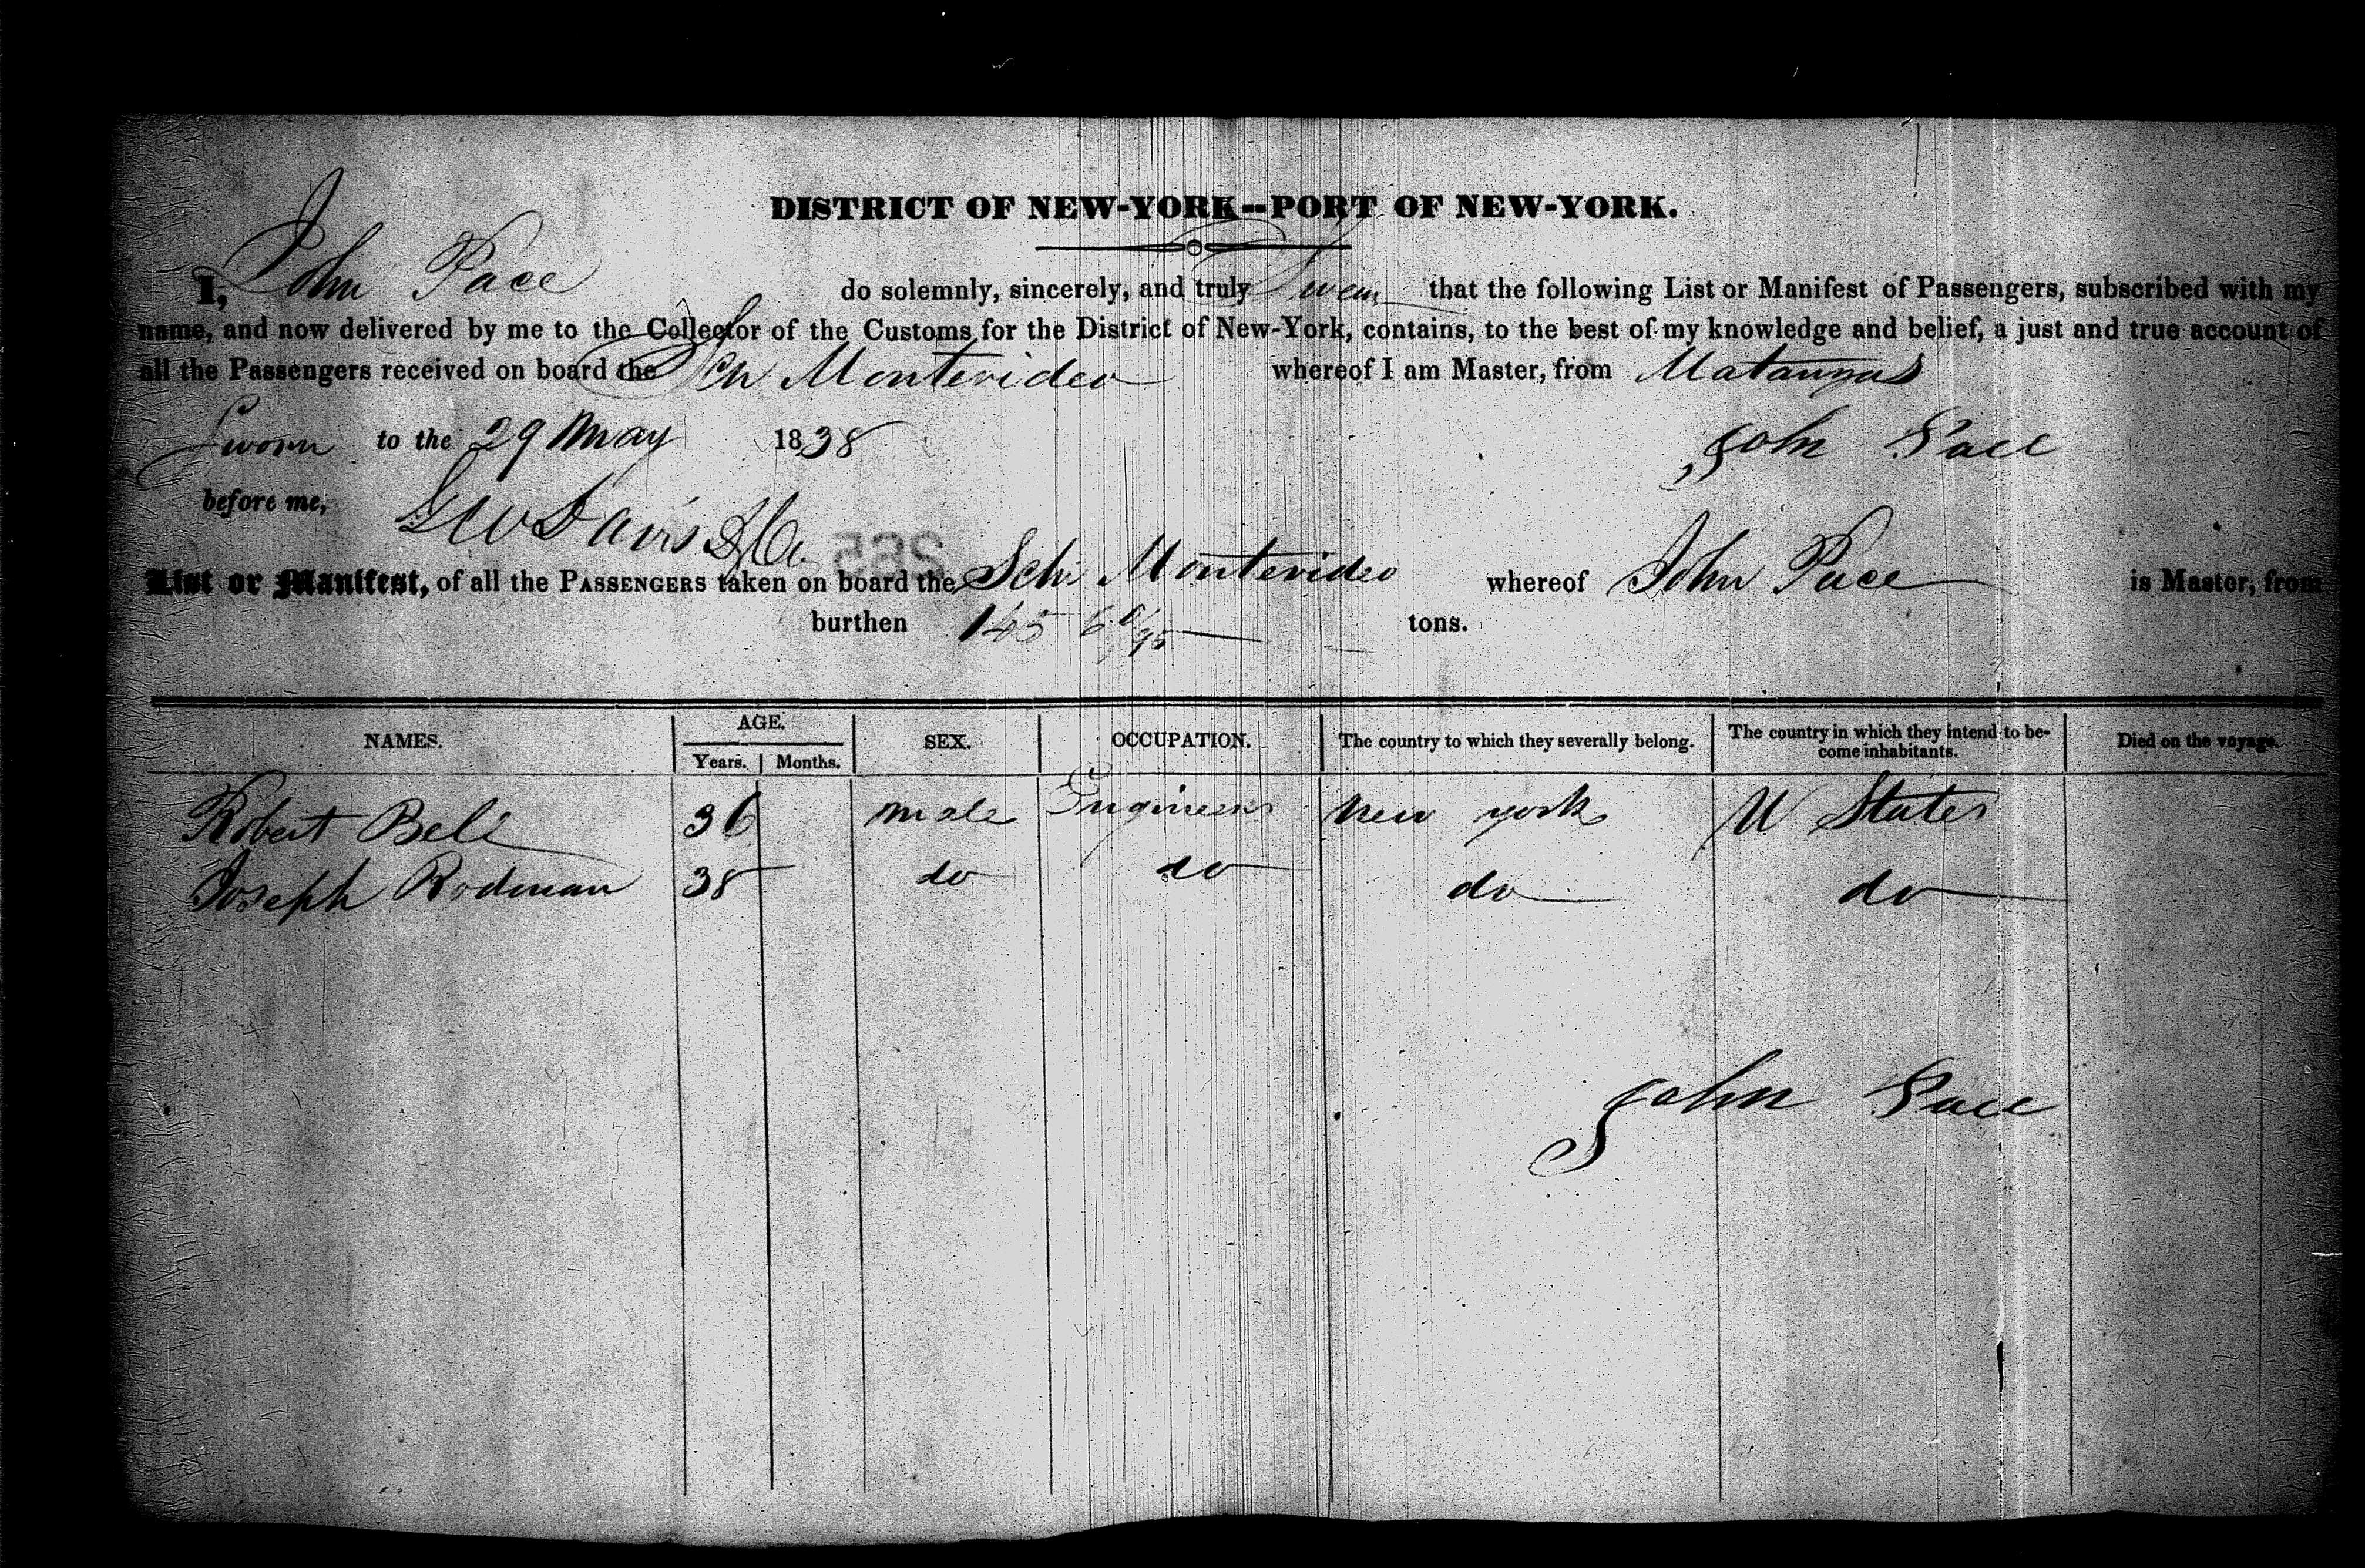 DISTRICT OF NEW-YORK--PORT OF NEW-YORK.
I, John Pace do solemnly, sincerely, and truly Swear that the following List or Manifest of Passengers, subscribed with my
name, and now delivered by me to the Collector of the Customs for the District of New-York, contains, to the best of my knowledge and belief, a just and true account of
all the Passengers received on board the Sch Montevideo whereof I am Master, from Matanzas
Sworn to the 29 May 1838 John Pace
before me, Davis
List or Manifest, of all the PASSENGERS taken on board the Schr Montevideo whereof John Pace is Master, from
burthen tons.
NAMES. AGE. SEX. OCCUPATION. The country to which they severally belong. The country in which they intend to be-
come inhabitants. Died on the voyage.
Years. Months.
Robert Bell 36 male Engineer New york U States
Joseph Rodman 38 do do do do
John Pace